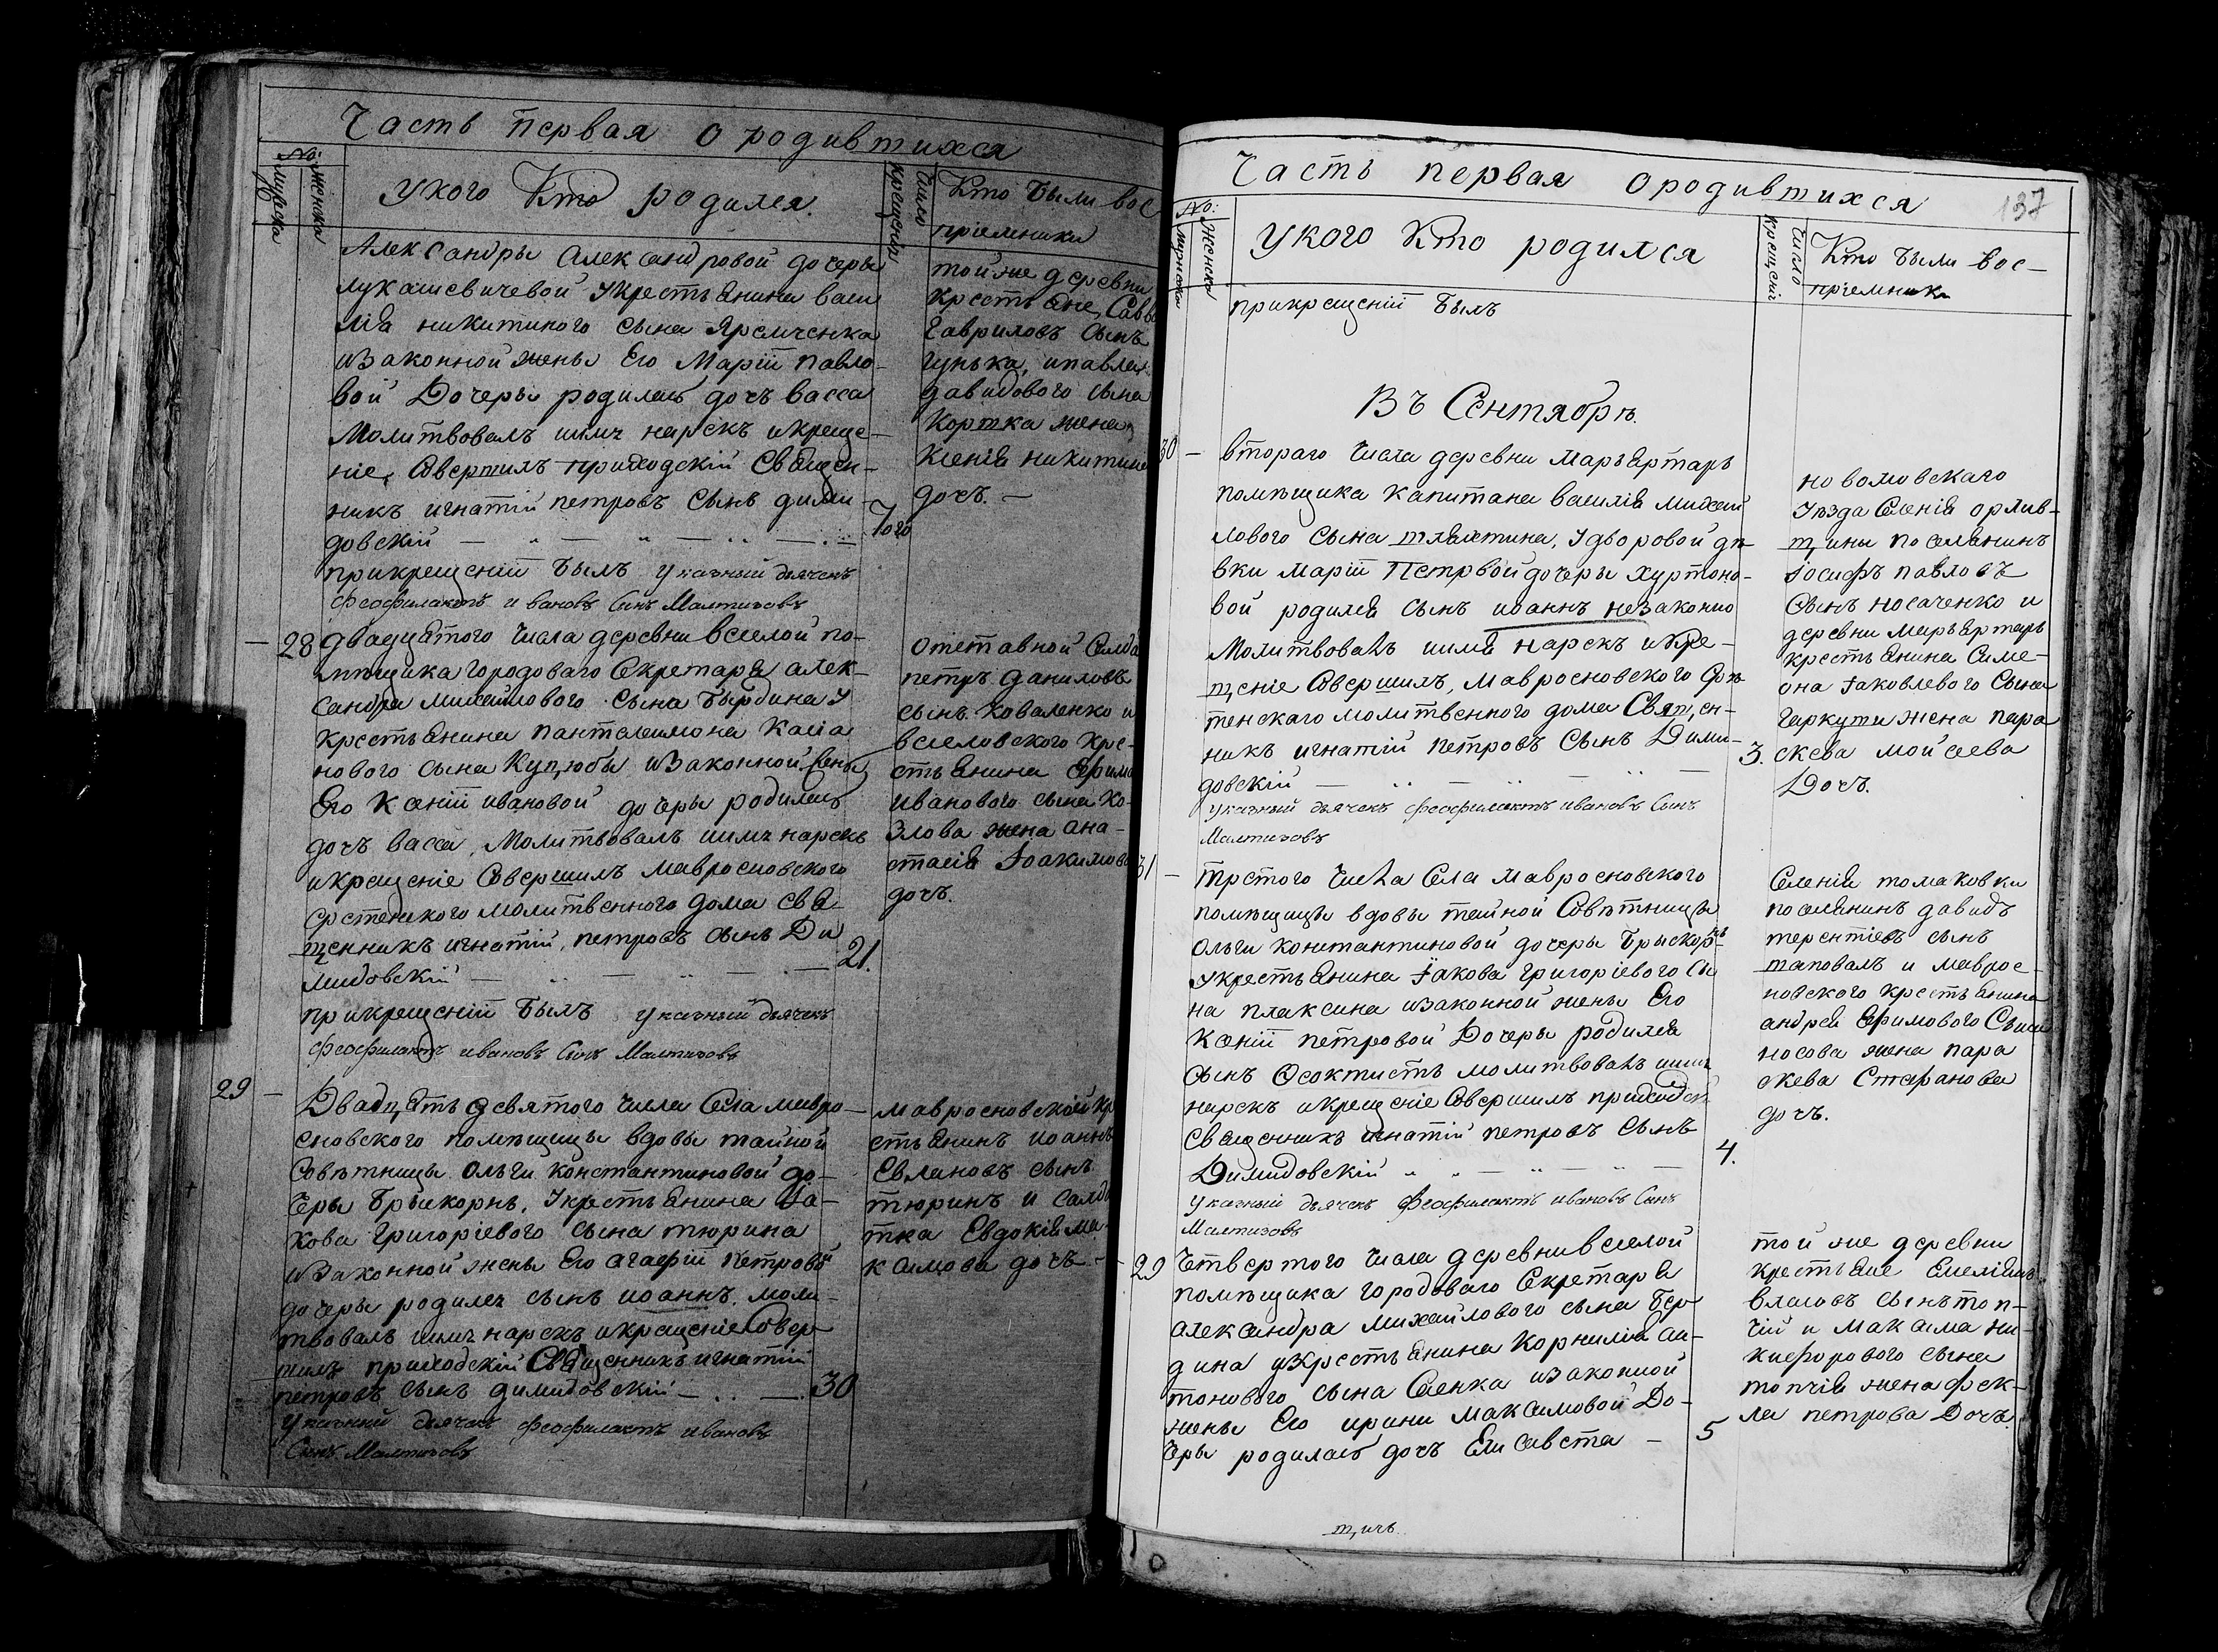 Часть первая о родившихся
№:
мужеска
женска
У кого Кто родился.
Число
крещения
Кто были вос
приемники
Александры Александровой дочеры
лукашевичевой у крестьянина васи
лія никитиного сына Яремченка
изаконной жены Его Маріи павло-
вой Дочеры родилась дочь васса
Молитвовалъ имя нарекъ и креще-
ніе, Совершилъ приходскій Священ-
никъ игнатій петровъ Сынъ дими-
довскій
прикрещеніи былъ указный дьячекъ
феофилактъ ивановъ Сынъ
7го
той же деревни
Крестьяне, Савва
Гавриловъ Сынъ
гунька, и павла
давидового сына
Коржка жена
Ксенія никитина
дочь. —
28 двадцятого Числа деревни веселой по-
мѣщика городоваго Секретаря алек-
сандра михайлового Сына Бырдина у
крестьянина пантелеимона Касіа
нового сына Куцюбы изаконной жены
Его Ксеніи ивановой дочеры родилась
дочь васса, Молитвовалъ имя нарекъ
и крещеніе Совершилъ мавросновского
сретенского молитвенного дома свя
щенникъ игнатій, петровъ сынъ Ди
мидовскій
21.
прикрещеніи былъ указный дьячекъ
феофилактъ ивановъ Сынъ
отставной Солда
петръ даниловъ
сынъ коваленко и
веселовского кре-
стьянина Ефима
иванового сына ко-
злова жена ана-
стасія Іоакимова
дочь.
29 — Двадцять девятого Числа Села мавро-
сновского помѣщицы вдовы тайной
Совѣтницы Ольги константиновой до-
Черы Брискорнъ, Укрестьянина Іа-
кова григоріевого сына тюрина
изаконной жены Его агафіи петровой
дочеры родился сынъ иоаннъ. моли-
твовалъ имя нарекъ и крещеніе Совер
шилъ приходскій Священникъ игнатій
петровъ сынъ димидовскій — 30
Указный дьячекъ феофилактъ ивановъ
Сынъ
мавросновскій кр
стьянинъ иоаннъ
Евлановъ сынъ
тюринъ и салда
тка Евдокія ма
ксимова дочь —
Часть первая о родившихся
137
№:
мужеска
женска
У кого Кто родился
Число
крещенія
Кто были вос-
приемники
прикрещеніи былъ
Въ Сентябрѣ.
30 — втораго Числа деревни марьяртаръ
помѣщика капитана василія михай
лового сына, Удворовой дѣ-
вки маріи Петрвой дочеры хуртоно-
вой родился сынъ иоаннъ незаконно
Молитвовалъ имя нарекъ и кре-
щеніе Совершилъ, Мавросновского Срѣ-
тенскаго молитвенного дома Священ-
никъ игнатій петровъ Сынъ Дими-
довскій
3.
указный дьячекъ феофилактъ ивановъ Сынъ
новомовскаго
Уѣзда Селенія орлив-
щины поселянинъ
Іосифъ павловъ
Сынъ носаченко и
деревни марьяртаръ
крестьянина Симе-
она Іаковлевого Сына
Гаркуши жена пара
скева мойсеева
Дочь.
31 — третого Числа Села мавросновского
помѣщицы вдовы тайной Совѣтницы
Ольги константиновой дочеры Брискорнъ
Укрестьянина Іакова григоріевого Сы
на плаксина изаконной жены Его
Ксеніи петровой Дочеры родился
сынъ Феоктистъ молитвовалъ имя
нарекъ и крещеніе Совершилъ приходскій
Священникъ игнатій петровъ Сынъ
Димидовскій
4.
указный дьячекъ феофилактъ ивановъ Сынъ
Селенія томаковки
поселянинъ давидъ
терентіевъ сынъ
шаповалъ и мавросо-
новского крестьянина
андрея Ефимового Сына
носова жена пара
скева Стефанова
дочь.
29 Четвертого Числа деревни веселой
помѣщика городоваго Секретаря
александра михайлового сына Бер
дина укрестьянина Корнилія ан-
тонового сына Сенка изаконной
жены Его ирины максимовой До-
черы родилась дочь Елисавета —
5
той же деревни
крестьяне Емеліянъ
власовъ сынъ топ-
чій и максима ни-
кифорового сына
топчія жена фек-
ла петрова Дочь.